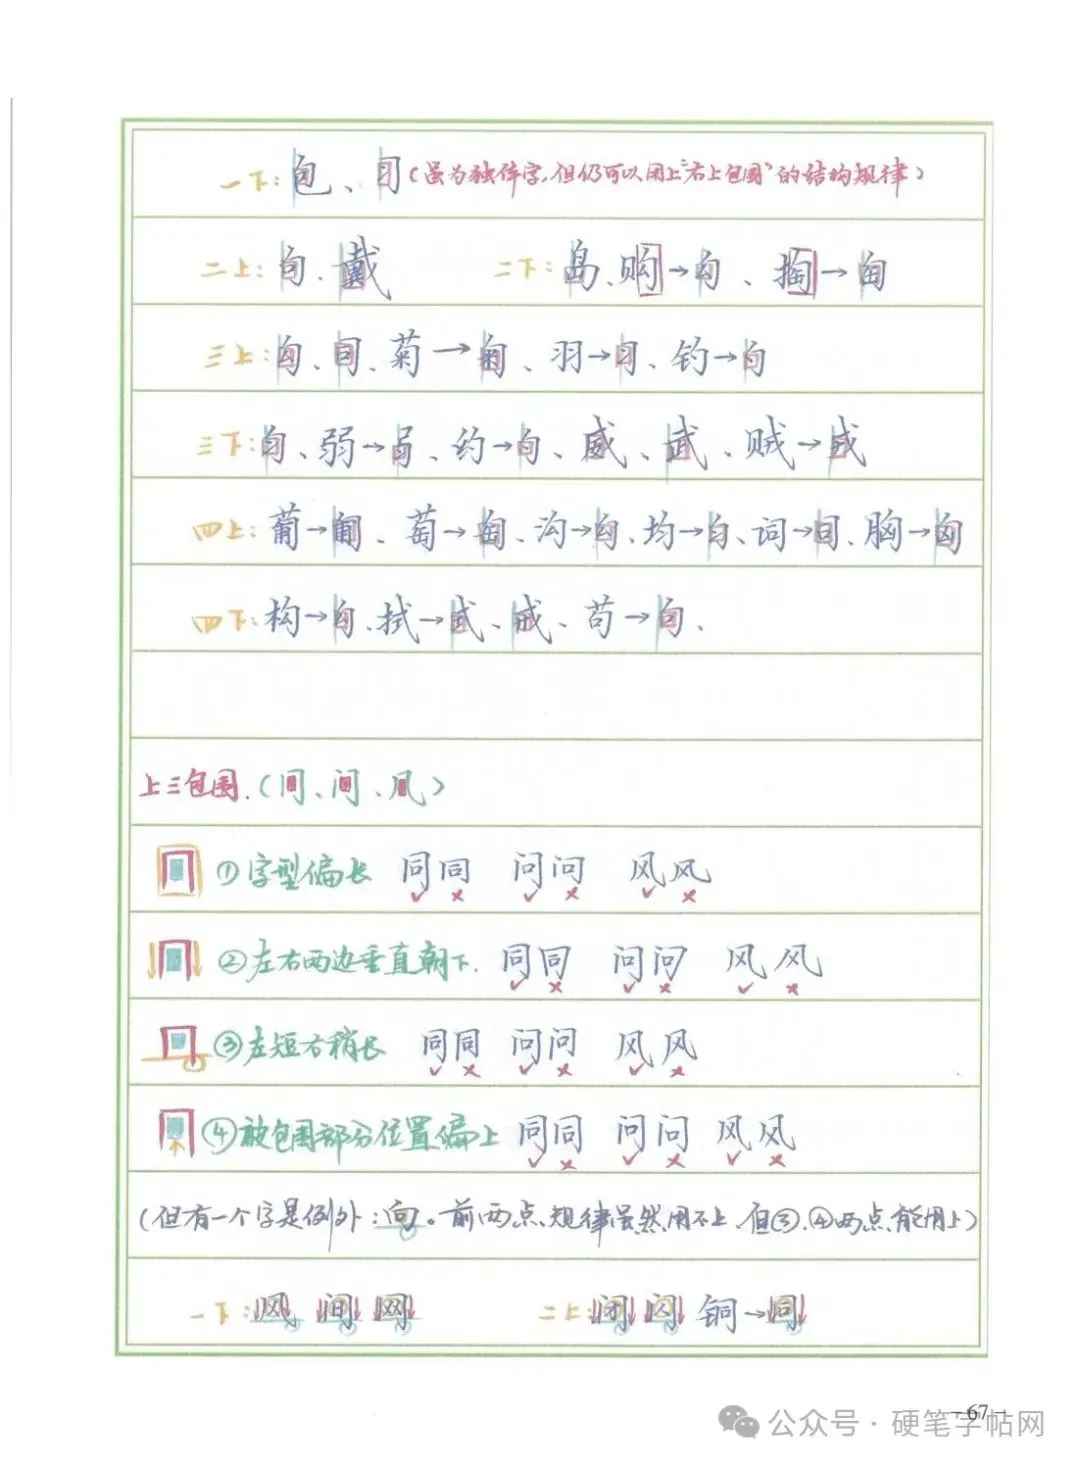 一下：包、习（虽为独体字，但仍可以用上“右上包围”的结构规律）
二上：句、戴 二下：岛、购→勾、掏→匋
三上：勾、司、菊→匊、羽→习、钓→勺
三下：匀、弱→弓、约→勺、威、武、贼→戎
四上：葡→匍、萄→匋、沟→勾、均→匀、词→司、胸→匈
四下：构→勾、拭→式、戒、苟→句、
上三包围.（同、问、风）
①字型偏长 同同 问问 风风
②左右两边垂直朝下. 同同 问问 风风
③左短右稍长 同同 问问 风风
④被包围部分位置偏上 同同 问问 风风
（但有一个字是例外：向。前两点规律虽然用不上，但③、④两点能用上）
一下：风 间 网 二上：闭 闪 铜→同
—67—
公众号·硬笔字帖网